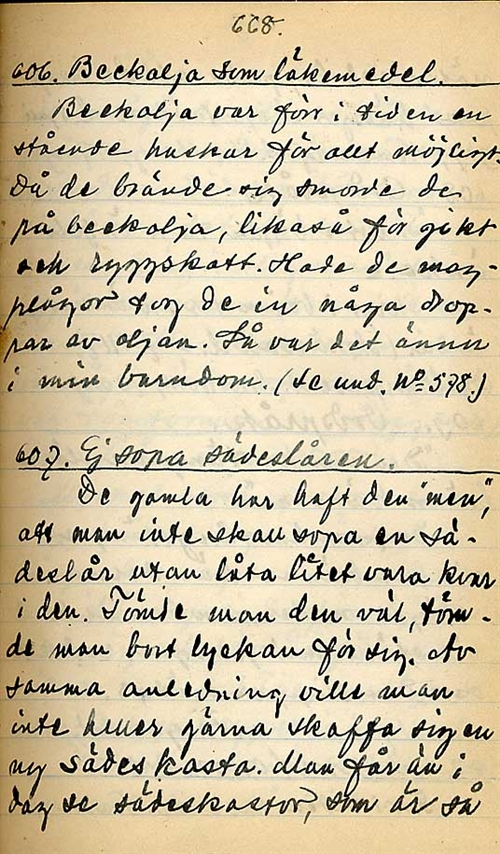 668.
606. Beckolja som läkemedel.
Beckolja var förr i tiden en
stående huskur för allt möjligt.
Då de brände sig smorde de
på beckolja, likaså för gikt
och ryggskott. Hade de mag-
plågor tog de in några drop-
par av oljan. Så var det ännu
i min barndom. (Se und. Nº 578.)
607. Ej sopa sädeslåren.
De gamla har haft den "men",
att man inte skall sopa en sä-
deslår utan låta litet vara kvar
i den. Tömde man den väl, töm-
de man bort lyckan för sig. Av
samma anledning ville man
inte heller gärna skaffa sig en
ny sädeskasta. Man får än i
dag se sädeskastor, som är så